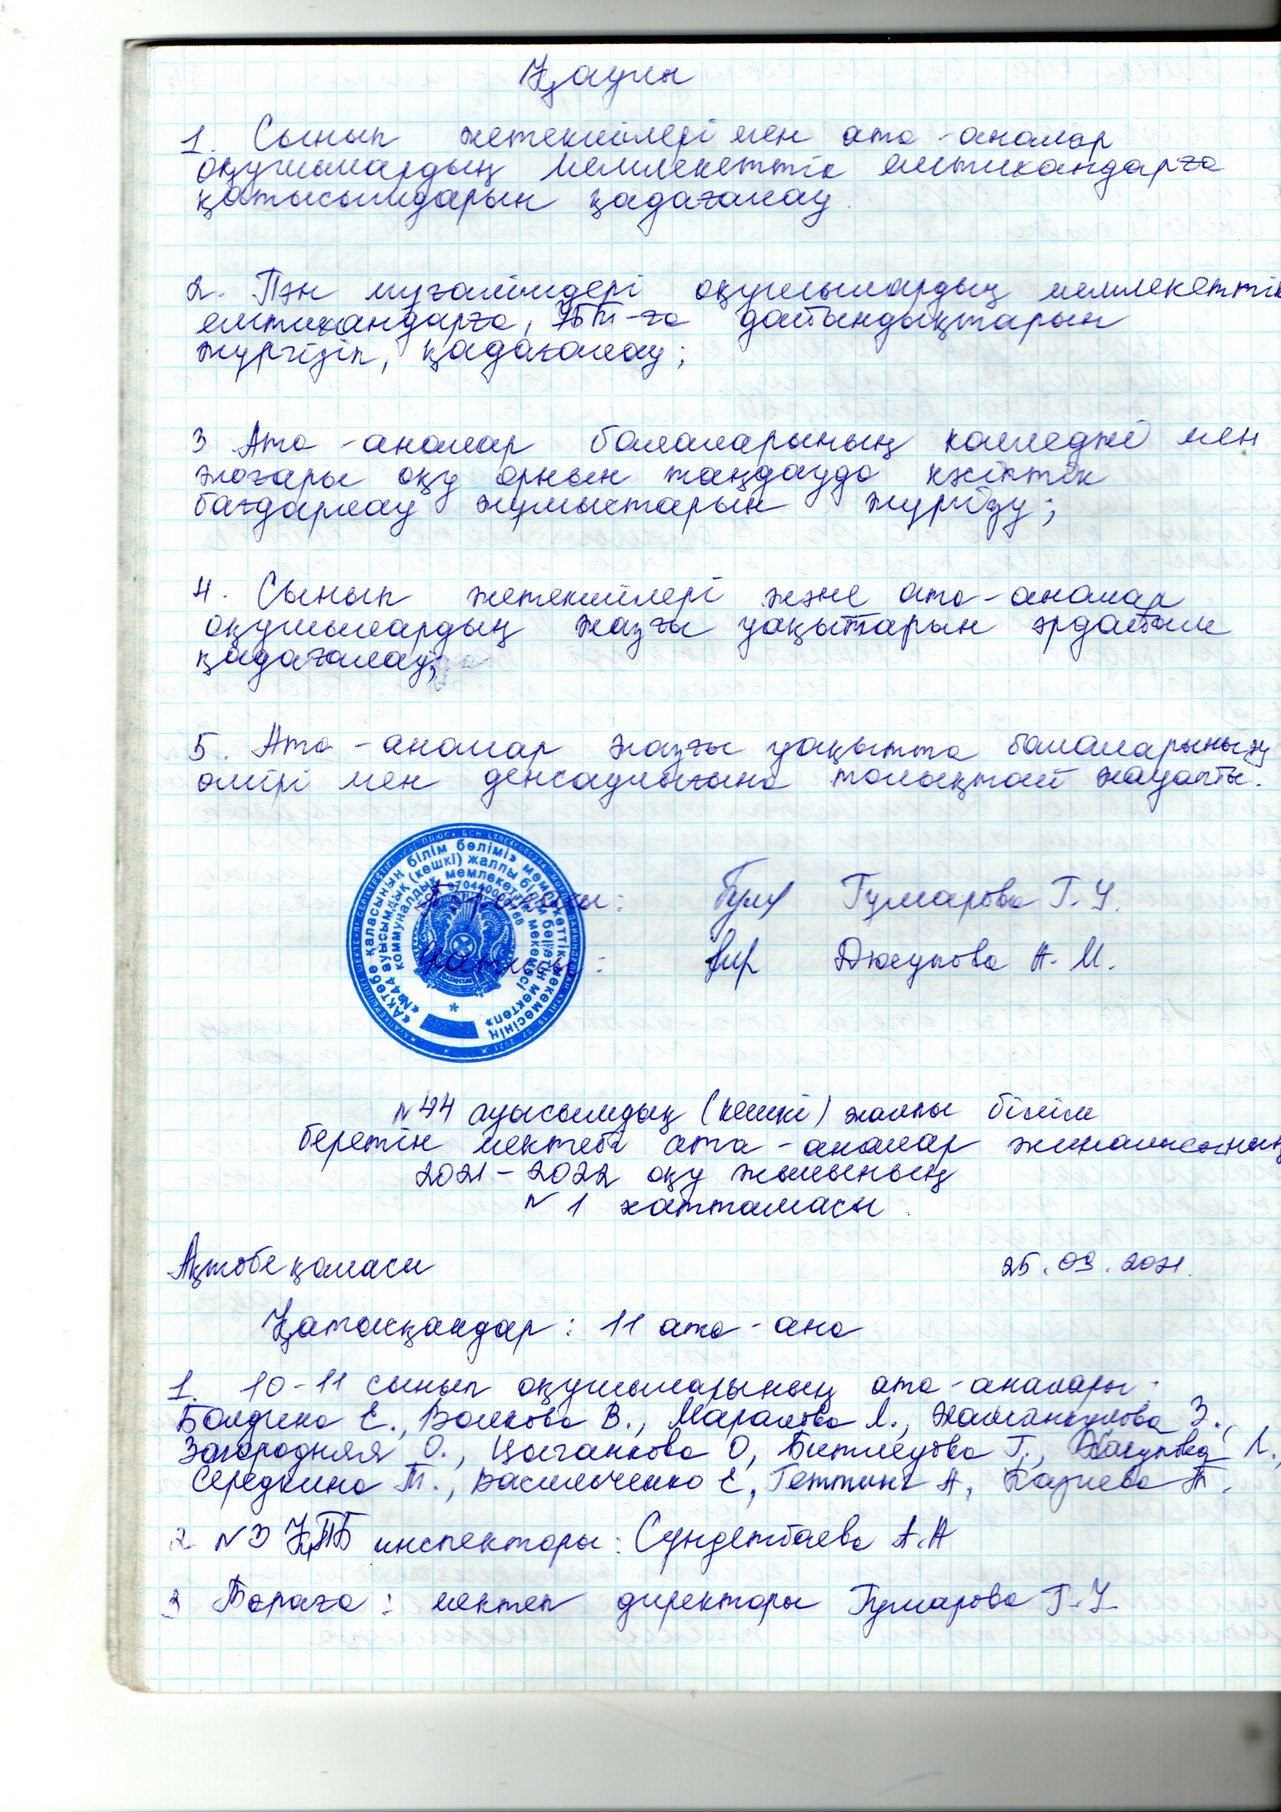 Қаулы
1. Сынып жетекшілері мен ата-аналар
оқушылардың мемлекеттік емтихандарға
қатысымдарын қадағалау.
2. Пән мұғалімдері оқушылардың мемлекеттік
емтихандарға, ҰБТ-ға дайындықтарын
жүргізіп, қадағалау;
3 Ата-аналар балаларының колледжі мен
жоғары оқу орнын таңдауда кәсіптік
бағдарлау жұмыстарын жүргізу;
4. Сынып жетекшілері және ата-аналар
оқушылардың жазғы уақыттарын әрдайым
қадағалау;
5. Ата-аналар жазғы уақытта балаларының
өмірі мен денсаулығына толықтай жауапты.
«Ақтөбе қаласының білім бөлімі» мемлекеттік мекемесінің
«№44 ауысымдық (кешкі) жалпы білім беретін мектеп»
коммуналдық мемлекеттік мекемесі
Төрағасы: Гумарова Г.У.
Хатшы: Джупова А.М.
№44 ауысымдық (кешкі) жалпы білім
беретін мектебі ата-аналар жиналысының
2021-2022 оқу жылының
№1 хаттамасы.
Ақтөбе қаласы 25.09.2021.
Қатысқандар: 11 ата-ана
1. 10-11 сынып оқушыларының ата-аналары.
Болдина Е., Волкова В., Маралова Л., Жаманкулова З.,
Загородняя О., Цыганкова О, Битлеуова Г., Л.,
Середкина Т., Васильченко Е, Геттинг А, Казиева Т.
2 №3 ҚТБ инспекторы: Сундетбаева А.А
3 Төраға: мектеп директоры Гумарова Г.У